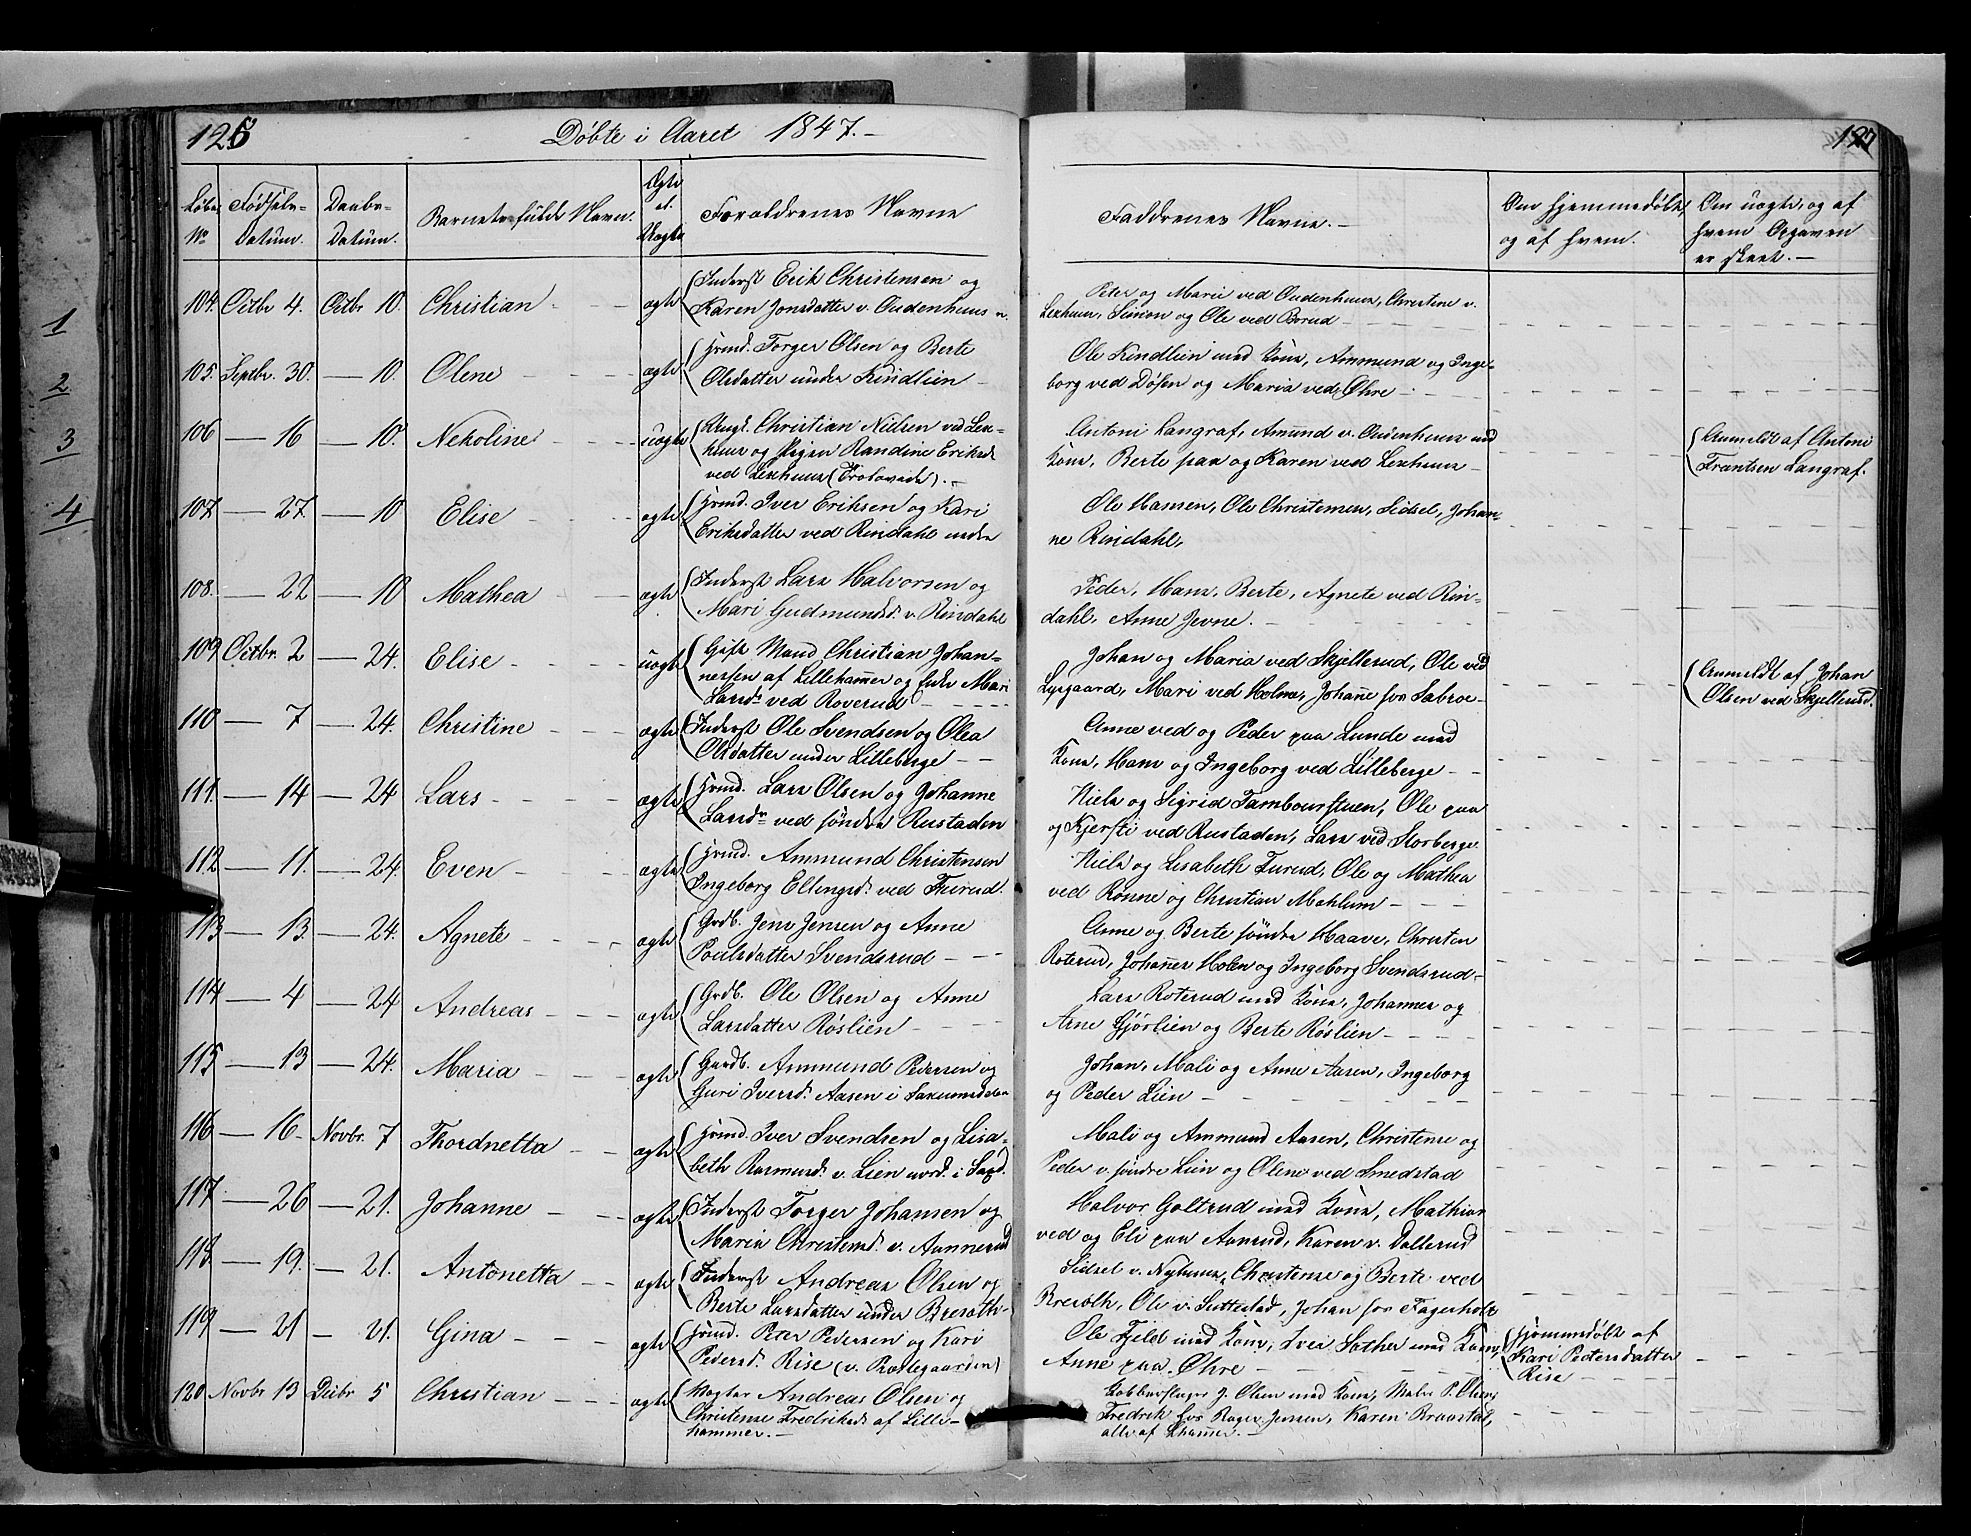 126
Døbte i Aaret 1847.-
Løbe No
Fødsels-Datum.
Daabs-Datum.
Barnets fulde Navn.
Ægte el. Uægte
Forældrenes Navne
104. Octbr 4. Octbr 10. Christian - - - ægte Inderst Erik Christensen og
Karen Jonsdatter v. Oudenhuus
105. Septbr. 30. — 10. Olene - - - ægte Huusmd. Torger Olsen og Berte
Olsdatter under Kindlien -
106 — 16 — 10. Nekoline uægte Ungk. Christian Nilsen ved Lex-
huus og Pigen Randine Eriksd.
ved Lexhuus
107 — 27. — 10 Elise - - - ægte Huusmd. Iver Eriksen og Kari
Eriksdatter ved Rindahl nedre
108. — 22 — 10 Mathea - - ægte Inderst Lars Halvorsen og
Mari Gudmundsd. v. Rindahl
109 Octbr. 2 — 24. Elise - - - uægte Gift Mand Christian Johan-
nessen af Lillehamer og Enke Mari
Larsdr ved Roverud - - -
110 — 7 — 24. Christine - - - ægte Inderst Ole Svendsen og Olea
Olsdatter under Lilleberge - -
111. — 14 — 24 Lars - - - - ægte Huusmd. Lars Olsen og Johanne
Larsdr ved søndre Rustaden
112 — 11. — 24. Even - - - ægte Huusmd. Ammund Christensen
Ingeborg Ellingsd. ved Furud.
113 — 13. — 24. Agnete - - - ægte Grdb. Jens Jensen og Anne
Poulsdatter Svendsrud - - -
114 — 4 — 24 Andreas - - - ægte Grdb. Ole Olsen og Anne
Larsdatter Røslien - - - -
115 — 13 — 24. Maria - - - ægte Gaardb. Ammund Pedersen og
Guri Iversd. Aasen i Saxumsdalen
116 — 16. Novbr. 7 Thordnetta - - ægte Huusmd. Iver Svendsen og Lisa-
beth Rasmusd. v. Lien nord. i Saxd.
117. — 26 — 21. Johanne - - ægte Inderst Torger Johansen og
Maria Christensd. v. Aannerud
118. — 19. — 21. Antonetta - - ægte Inderst Andreas Olsen og
Berte Larsdatter under Bresoth-
119 — 21 — 21. Gina - - - ægte Huusmd. Peder Pedersen og Kari
Pedersd. Rise
120 Novbr 13 Decbr 5 Christian - - - ægte Andreas Olsen og
Christense Fredriksd. af Lille-
hammer.-
127
Faddrenes Navne.-
Om hjemmedøbt, og af hvem.
Om uægte, og af hvem Opgaven er skeet.-
Peter og Marie ved Oudenhuus, Christine v.
Lexhuus, Simon og Ole ved Borud -
Ole Kindlien med Kone, Ammund og Inge-
borg ved Døsen og Maria ved Øhre -
Antoni Langraf, Amund v. Oudenhuus med
Kone, Berte paa og Karen ved Lexhuus -
Anmeldt af Antoni
Frantsen Langraf.
Ole Hansen, Ole Christensen, Sidsel, Johan-
ne Rindahl,
Peder, Hans, Berte, Agnete ved Rin-
dahl, Anne Jevne. -
Johan og Maria ved Skjellerud, Ole ved
Lysgaard, Mari ved Holmen, Johane fra Sabroe-
Anmeldt af Johan
Olsen ved Skjellerud.
Anne ved og Peder paa Lunde med
Kone, Hans og Ingeborg ved Lilleberge - -
Niels og Sigrid Tambourstuen, Ole paa
og Kjersti ved Rustaden, Lars ved Storberge
Niels og Lisabeth Furud, Ole og Mathea
ved Rønne og Christian Mæhlum - - -
Anne og Berte søndre Haave, Christen
Roterud, Johannes Holen og Ingeborg Svendsrud-
Lars Roterud med Kone, Johannes og
Arne Gjørlien og Berte Røslien - - -
Johan, Mali og Anne Aasen, Ingeborg
og Peder Lien - - -
Mali og Ammund Aasen, Christense og
Peder v. søndre Lien og Olene ved Smedstad
Halvor Galtrud med Kone, Mathias
ved og Eli paa Aanrud, Karen v. Dallerud
Sidsel v. Nyhuus, Christense og Berte ved
Bresoth, Ole v. Suttestad, Johan fra Fagerholt
Ole Fjeld med Kone, Iver Sother med Kone,
Anne paa Øhre - -
Hjemmedøbt af
Kari Pedersdatter
Rise - - -
Kobberslager J. Olsen med Kone, Maler P. Olsen,
Fredrik fra Jensen, Karen Braastad,
alle af Lhamer.-
1
2
3
4